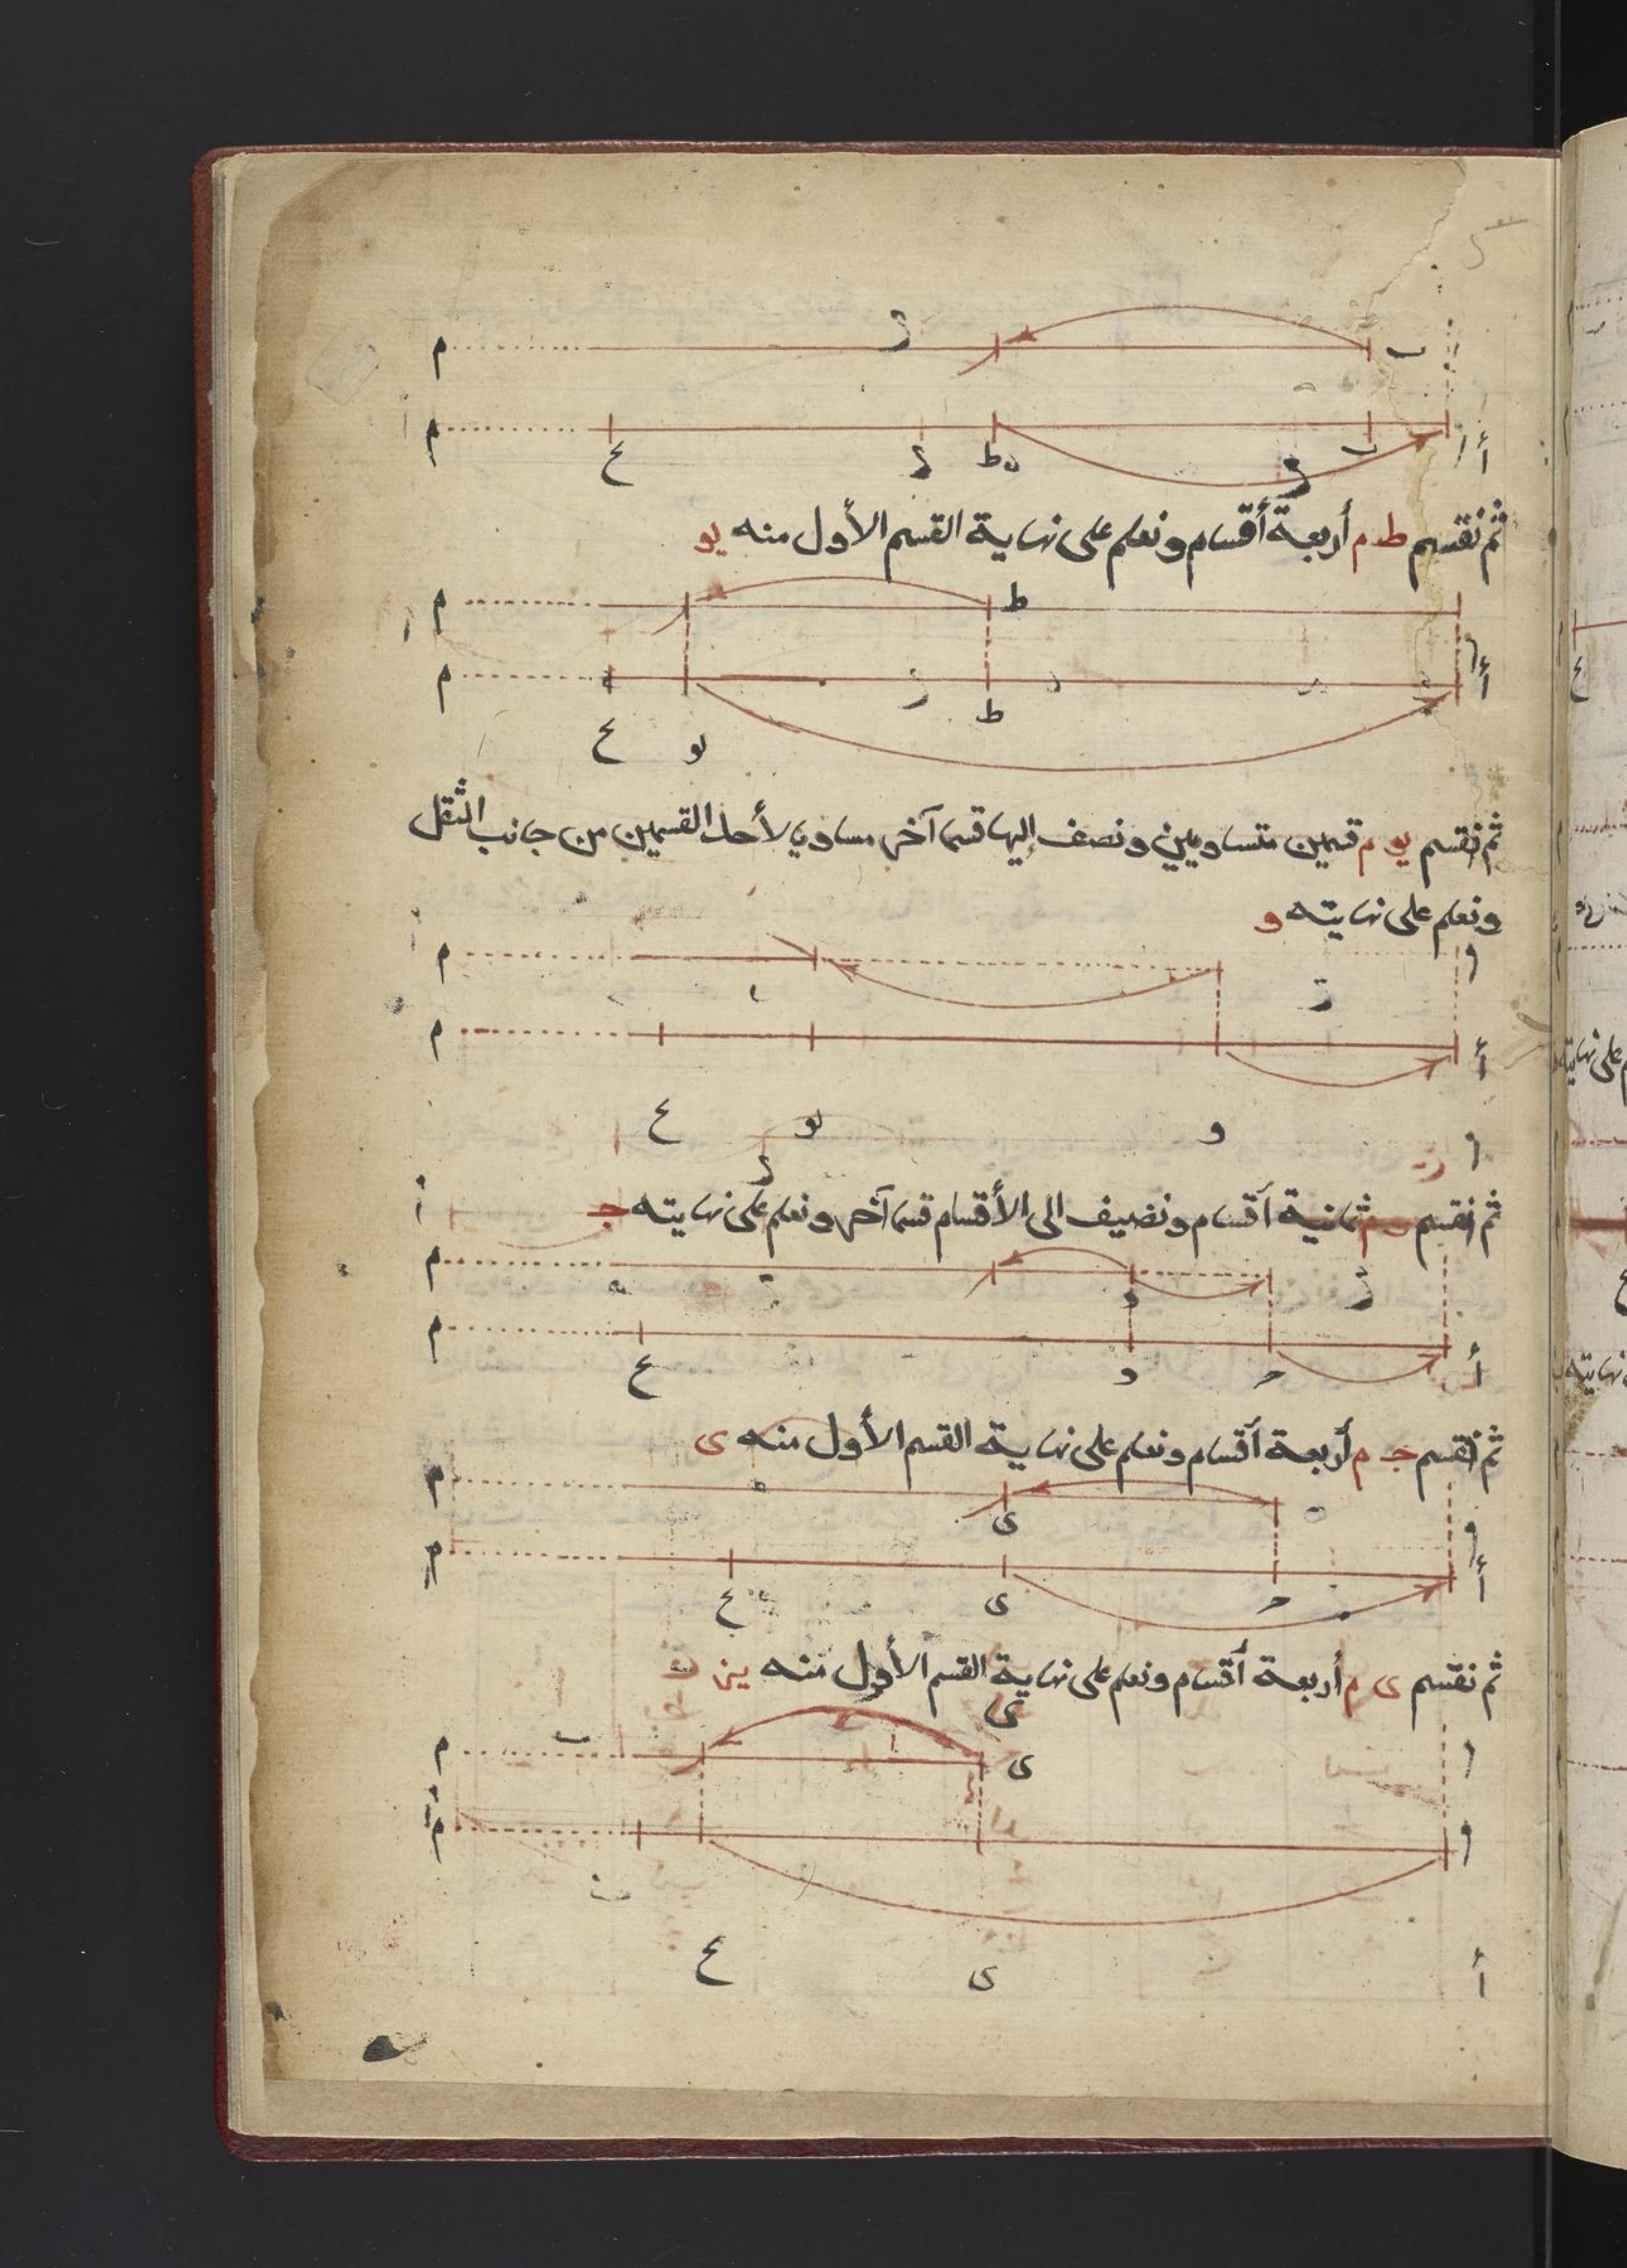 م ز ب
م ع ز ط ب أ
ثم نقسم ط م أربعة أقسام ونعلم على نهاية القسم الأول منه يو
م ط
م ط أ
ع يو
ثم نقسم يو م قسمين متساويين ونضف إليها قسما آخر مساويا لأحد القسمين من جانب الثقل
ونعلم على نهايته و
م
م أ
ع يو و
ثم نقسم و م ثمانية أقسام ونضيف الى الأقسام قسما آخر ونعلم على نهايته ج
م و
م أ
ع و ح
ثم نقسم ج م أربعة أقسام ونعلم على نهاية القسم الأول منه ى
م ى
م أ
ع ى ح
ثم نقسم ى م أربعة أقسام ونعلم على نهاية القسم الأول منه يز
م ى
م
ع ى أ